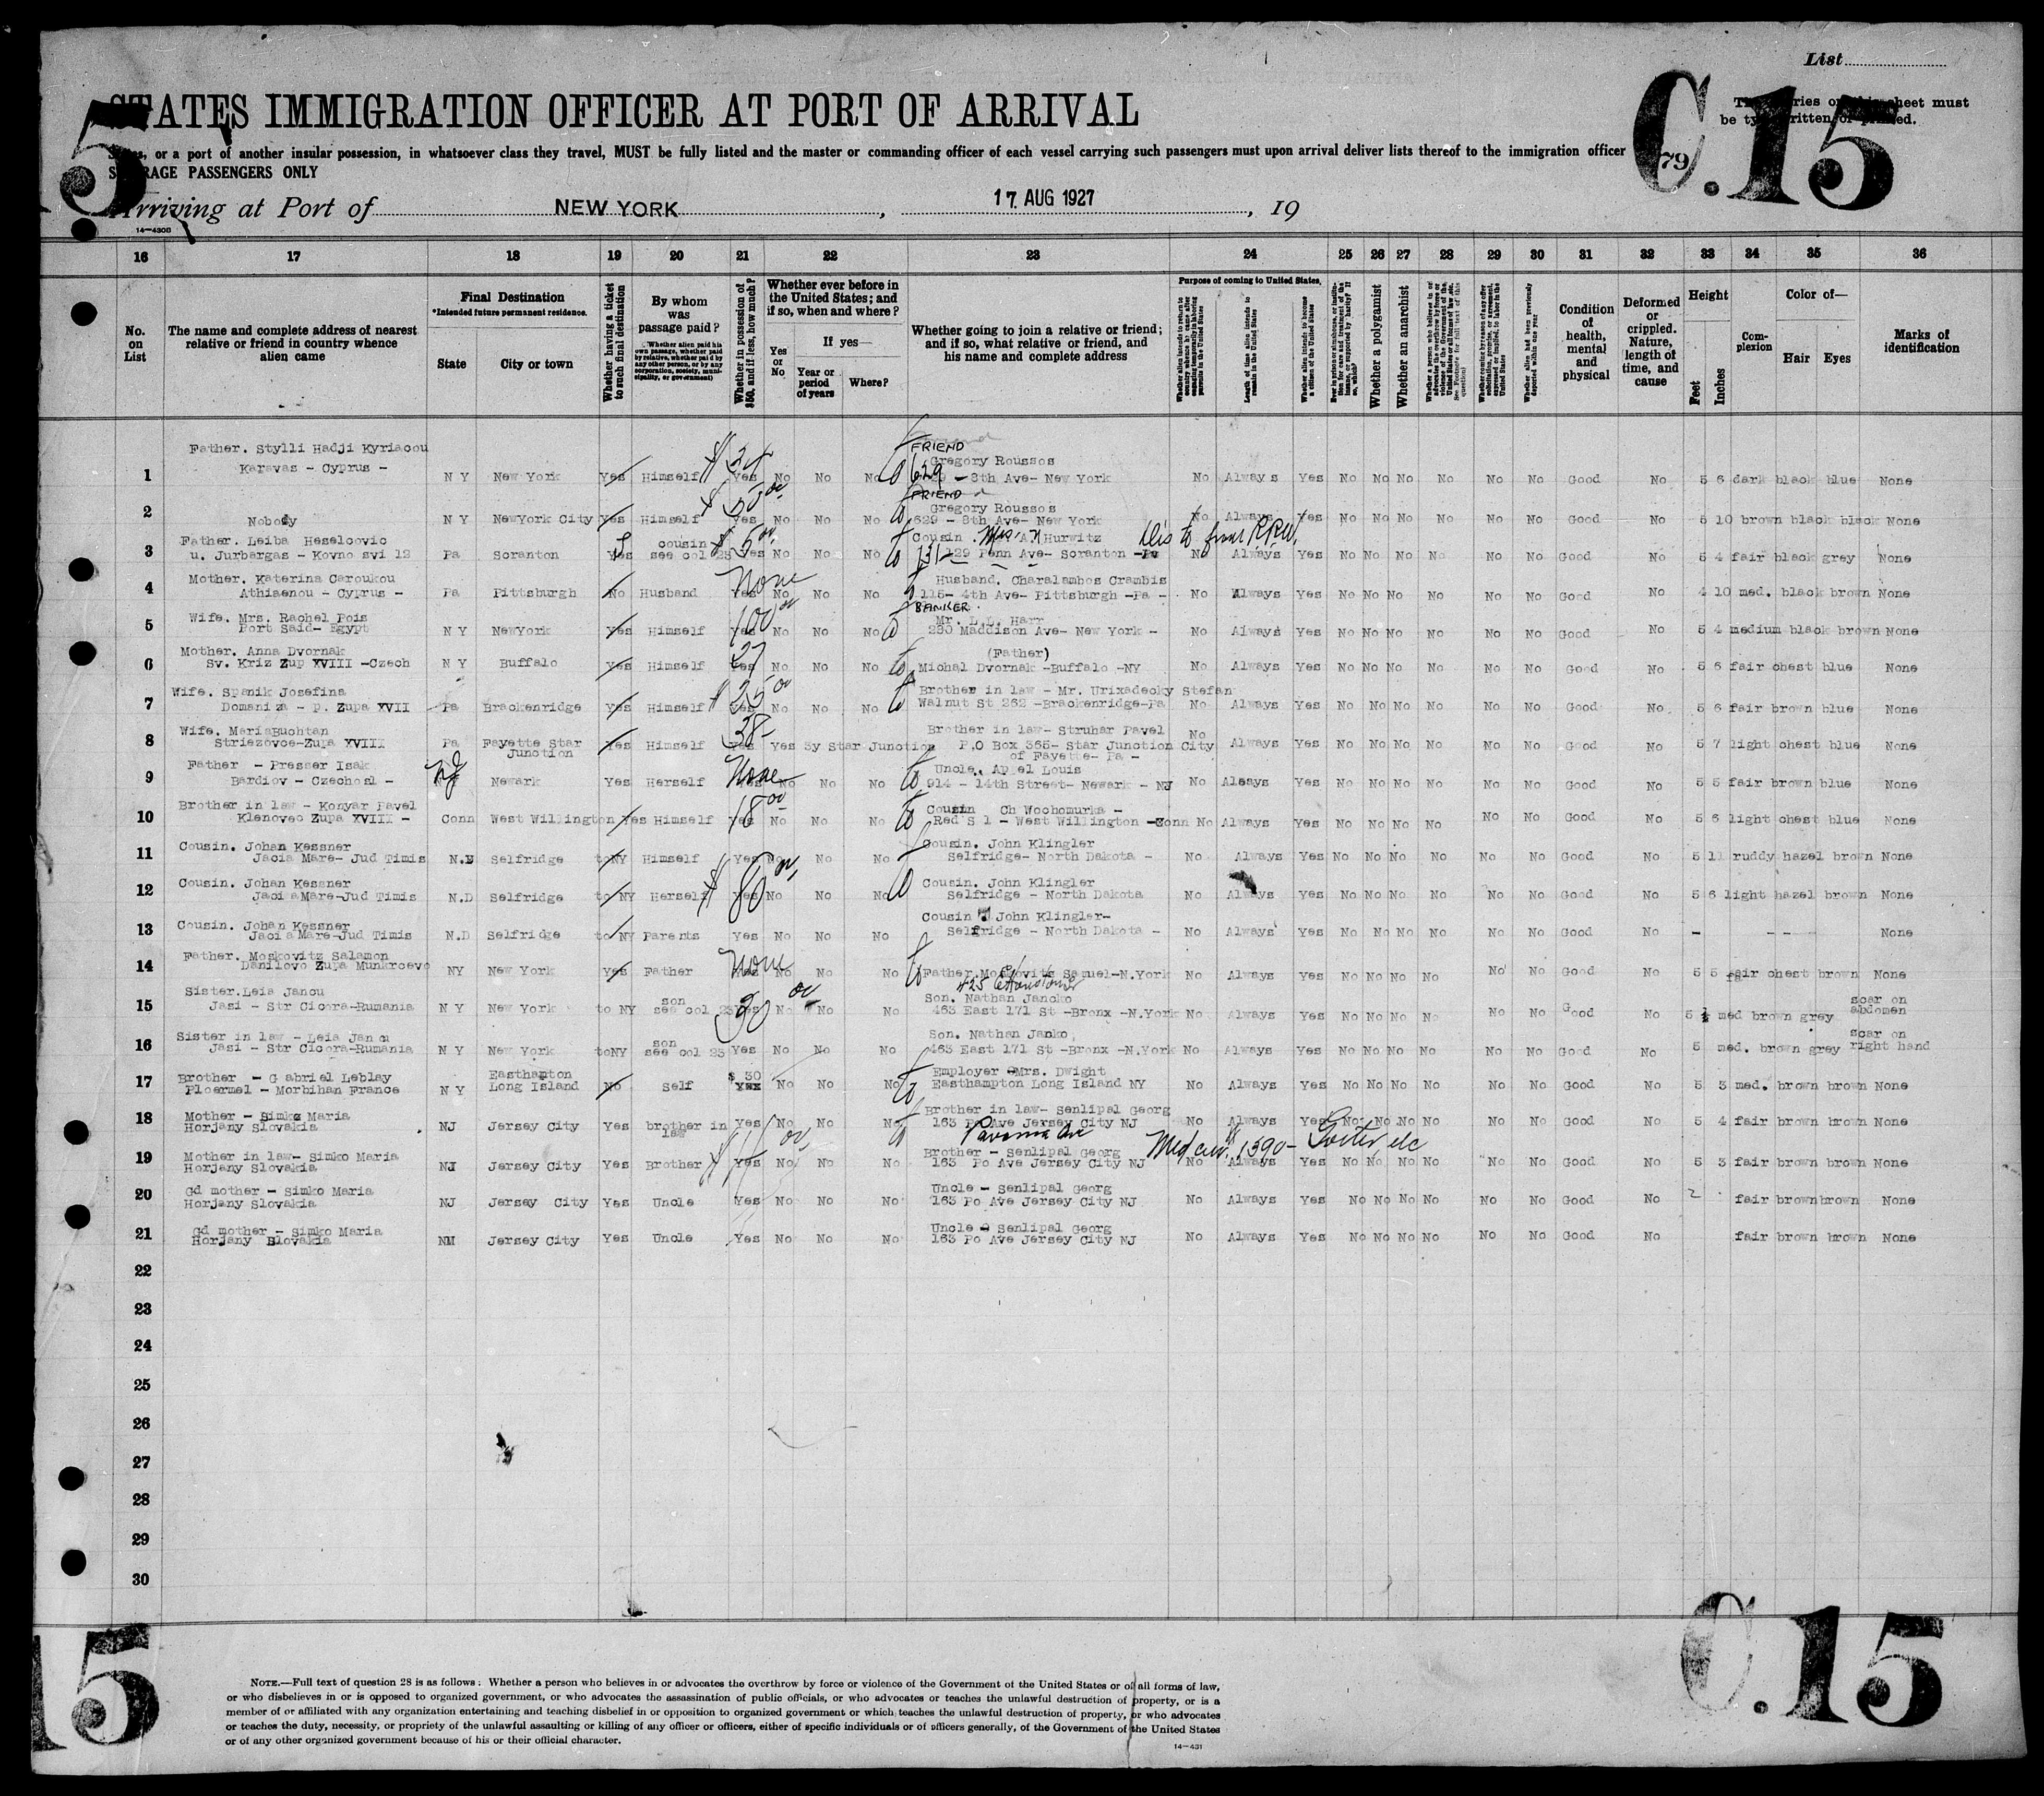 List
C.15
5
STATES IMMIGRATION OFFICER AT PORT OF ARRIVAL
be
or a port of another insular possession, in whatsoever class they travel, MUST be fully listed and the master or commanding officer of each vessel carrying such passengers must upon arrival deliver lists thereof to the immigration officer
PASSENGERS ONLY
79
Arriving at Port of NEW YORK, 17 AUG 1927, 19
14-430B
16 17 18 19 20 21 22 23 24 25 26 27 28 29 30 31 32 33 34 35 36
No. on List
The name and complete address of nearest relative or friend in country whence alien came
Final Destination
*Intended future permanent residence.
State
City or town
Whether having a ticket to such final destination
By whom was passage paid?
(Whether alien paid his own passage, whether paid by relative, whether paid by any other person, or by any corporation, society, municipality, or government)
Whether in possession of $50, and if less, how much?
Whether ever before in the United States; and if so, when and where?
Yes or No
If yes—
Year or period of years
Where?
Whether going to join a relative or friend; and if so, what relative or friend, and his name and complete address
Purpose of coming to United States.
Length of time alien intends to remain in the United States
Whether alien intends to become a citizen of the United States
Whether a polygamist
Whether an anarchist
Whether alien had been previously deported within one year
Condition of health, mental and physical
Deformed or crippled. Nature, length of time, and cause
Height
Feet
Inches
Complexion
Color of—
Hair
Eyes
Marks of identification
Father. Stylli Hadji Kyriacou FRIEND
Karavas - Cyprus - Gregory Roussos
1 N Y New York Yes Himself Yes No No No 629 - 8th Ave- New York No Always Yes No No No No No No Good No 5 6 dark black blue None
FRIEND
Gregory Roussos
2 Nobody N Y NewYork City Yes Himself Yes No No No 629 - 8th Ave- New York No Always Yes No No No No No No Good No 5 10 brown black black None
Father. Leiba Heselcovic cousin $ 5 Cousin Mrs. A Hurwitz
3 u. Jurbargas - Kovno svi 12 Pa Scranton Yes see col 23 Yes No No No 131 Penn Ave- Scranton -Pa No Always Yes No No No No No No Good No 5 4 fair black grey None
Mother. Katerina Caroukou None Husband. Charalambos Crambis
4 Athiaenou - Cyprus - Pa Pittsburgh No Husband Yes No No No 115- 4th Ave- Pittsburgh -Pa - No Always Yes No No No No No No Good No 4 10 med. black brown None
Wife. Mrs. Rachel Pois 100 BANKER. Mr. L.L. Harr
5 Port Said- Egypt N Y NewYork Yes Himself Yes No No No 230 Maddison Ave- New York - No Always Yes No No No No No No Good No 5 4 medium black brown None
Mother. Anna Dvornak 27 (Father)
6 Sv. Kriz Zup XVIII -Czech N Y Buffalo Yes Himself Yes No No No Michal Dvornak -Buffalo -NY No Always Yes No No No No No No Good No 5 6 fair chest blue None
Wife. Spanik Josefina $ 25 00 Brother in law - Mr. Urixadecky Stefan
7 Domaniza - p. Zupa XVII Pa Brackenridge Yes Himself Yes No No No Walnut St 262 -Brackenridge-Pa No Always Yes No No No No No No Good No 5 6 fair brown blue None
Wife. MariaBuchtan 38- Brother in law- Struhar Pavel
8 Striezovce-Zupa XVIII Pa Fayette Star Junction Yes Himself Yes Yes 3y Star Junction P.O Box 365- Star Junction City of Fayette- Pa - No Always Yes No No No No No No Good No 5 7 light chest blue None
Father - Presser Isak NJ None Uncle. Appel Louis
9 Bardiov - Czechosl - Newark Yes Herself No No No 914 - 14th Street- Newark - NJ No Always Yes No No No No No No Good No 5 5 fair brown blue None
Brother in law - Konyar Pavel 18 00 Cousin Ch Wochomurka -
10 Klenovec Zupa XVIII - Conn West Willington Yes Himself Yes No No No Red S 1 - West Willington -Conn No Always Yes No No No No No No Good No 5 6 light chest blue None
Cousin. Johan Kessner Cousin. John Klingler
11 Jacia Mare- Jud Timis N.D Selfridge toNY Himself Yes No No No Selfridge- North Dakota - No Always Yes No No No No No No Good No 5 11 ruddy hazel brown None
Cousin. Johan Kessner $ 80 Cousin. John Klingler
12 Jacia Mare-Jud Timis N.D Selfridge to NY Herself Yes No No No Selfridge - North Dakota No Always Yes No No No No No No Good No 5 6 light hazel brown None
Cousin. Johan Kessner Cousin John Klingler-
13 Jacia Mare-Jud Timis N.D Selfridge to NY Parents Yes No No No Selfridge - North Dakota - No Always Yes No No No No No No Good No - None
Father. Moskovitz Salamon None
14 Danilovo Zupa Munkacevo NY New York Yes Father No No No Father.Moskovits Samuel-N.York No Always Yes No No No No No No Good No 5 5 fair chest brown None
425
Sister.Leia Jancu son 90 00 Son. Nathan Jancko scar on
15 Jasi - Str Cicora-Rumania N Y New York to NY see col 23 Yes No No No 463 East 171 St -Bronx -N.York No Always Yes No No No No No No Good No 5 med brown grey abdomen
Sister in law - Leia Jancu son Son. Nathan Janko, scar on
16 Jasi - Str Cicora-Rumania N Y New York toNY see col 23 Yes No No No 463 East 171 St -Bronx -N.York No Always Yes No No No No No No Good No 5 med. brown grey right hand
Brother - Gabriel Leblay Easthampton $ 30 Employer -Mrs. Dwight
17 Ploermel - Morbihan France N Y Long Island No Self No No No Easthampton Long Island NY No Always Yes No No No No No No Good No 5 3 med. brown brown None
Mother - Simko Maria Brother in law- Senlipal Georg
18 Horjany Slovakia NJ Jersey City Yes brother in law Yes No No No 163 Po Ave Jersey City NJ No Always Yes No No No No No No Good No 5 4 fair brown brown None
Pavonia Ave Med cert. 1390- Goiter, etc
Mother in law- Simko Maria Brother - Senlipal Georg
19 Horjany Slovakia NJ Jersey City Yes Brother Yes No No No 163 Po Ave Jersey City NJ No Always Yes No No No No No No Good No 5 3 fair brown brown None
Gd mother - Simko Maria Uncle - Senlipal Georg
20 Horjany Slovakia NJ Jersey City Yes Uncle Yes No No No 163 Po Ave Jersey City NJ No Always Yes No No No No No No Good No 2 fair brown brown None
Gd mother - Simko Maria Uncle Senlipal Georg
21 Horjany Slovakia NM Jersey City Yes Uncle Yes No No No 163 Po Ave Jersey City NJ No Always Yes No No No No No No Good No fair brown brown None
22
23
24
25
26
27
28
29
30
15
C.15
NOTE.—Full text of question 28 is as follows: Whether a person who believes in or advocates the overthrow by force or violence of the Government of the United States or of all forms of law,
or who disbelieves in or is opposed to organized government, or who advocates the assassination of public officials, or who advocates or teaches the unlawful destruction of property, or is a
member of or affiliated with any organization entertaining and teaching disbelief in or opposition to organized government or which teaches the unlawful destruction of property, or who advocates
or teaches the duty, necessity, or propriety of the unlawful assaulting or killing of any officer or officers, either of specific individuals or of officers generally, of the Government of the United States
or of any other organized government because of his or their official character.
14-431